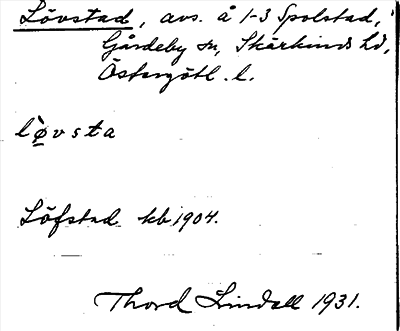 Lövstad, avs. å 1-3 Spolstad,
Gårdeby sn, Skärkinds hd,
Östergötl. l.
lø̀vsta
Löfstad kb 1904.
Thord Lindall 1931.